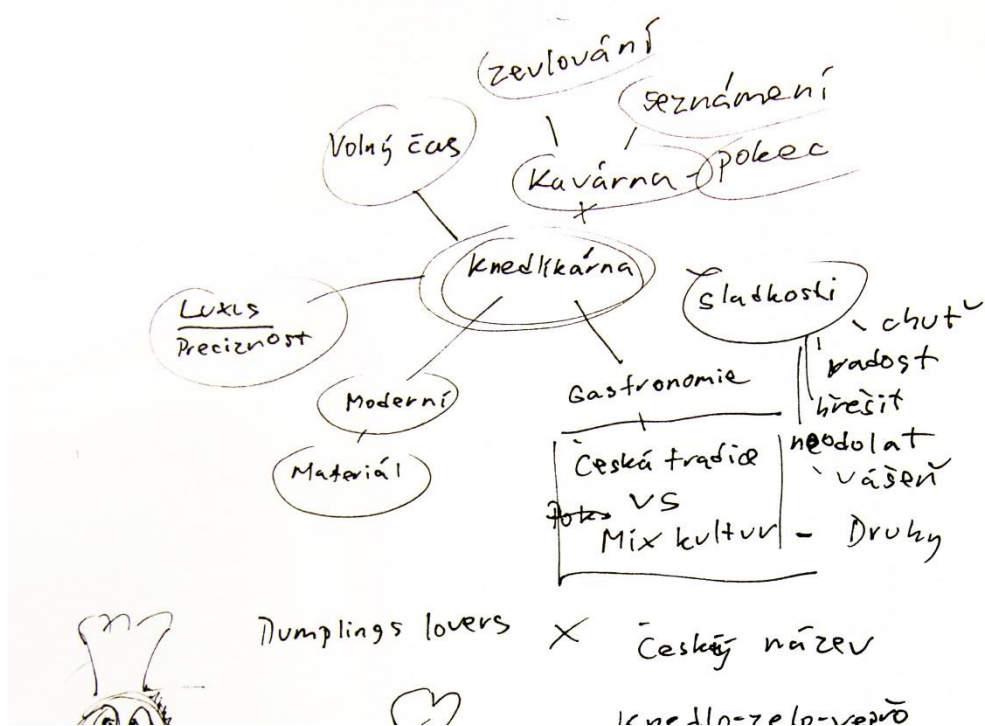 zevlování
seznámení
Volný čas
Kavárna - pokec
Knedlíkárna
Sladkosti
Luxus
Preciznost
chuť
radost
hřešit
neodolat
vášeň
Moderní
Gastronomie
Materiál
Česká tradice
VS
Mix kultur - Druhy
Dumplings lovers X Český název
Knedlo-zelo-vepřo